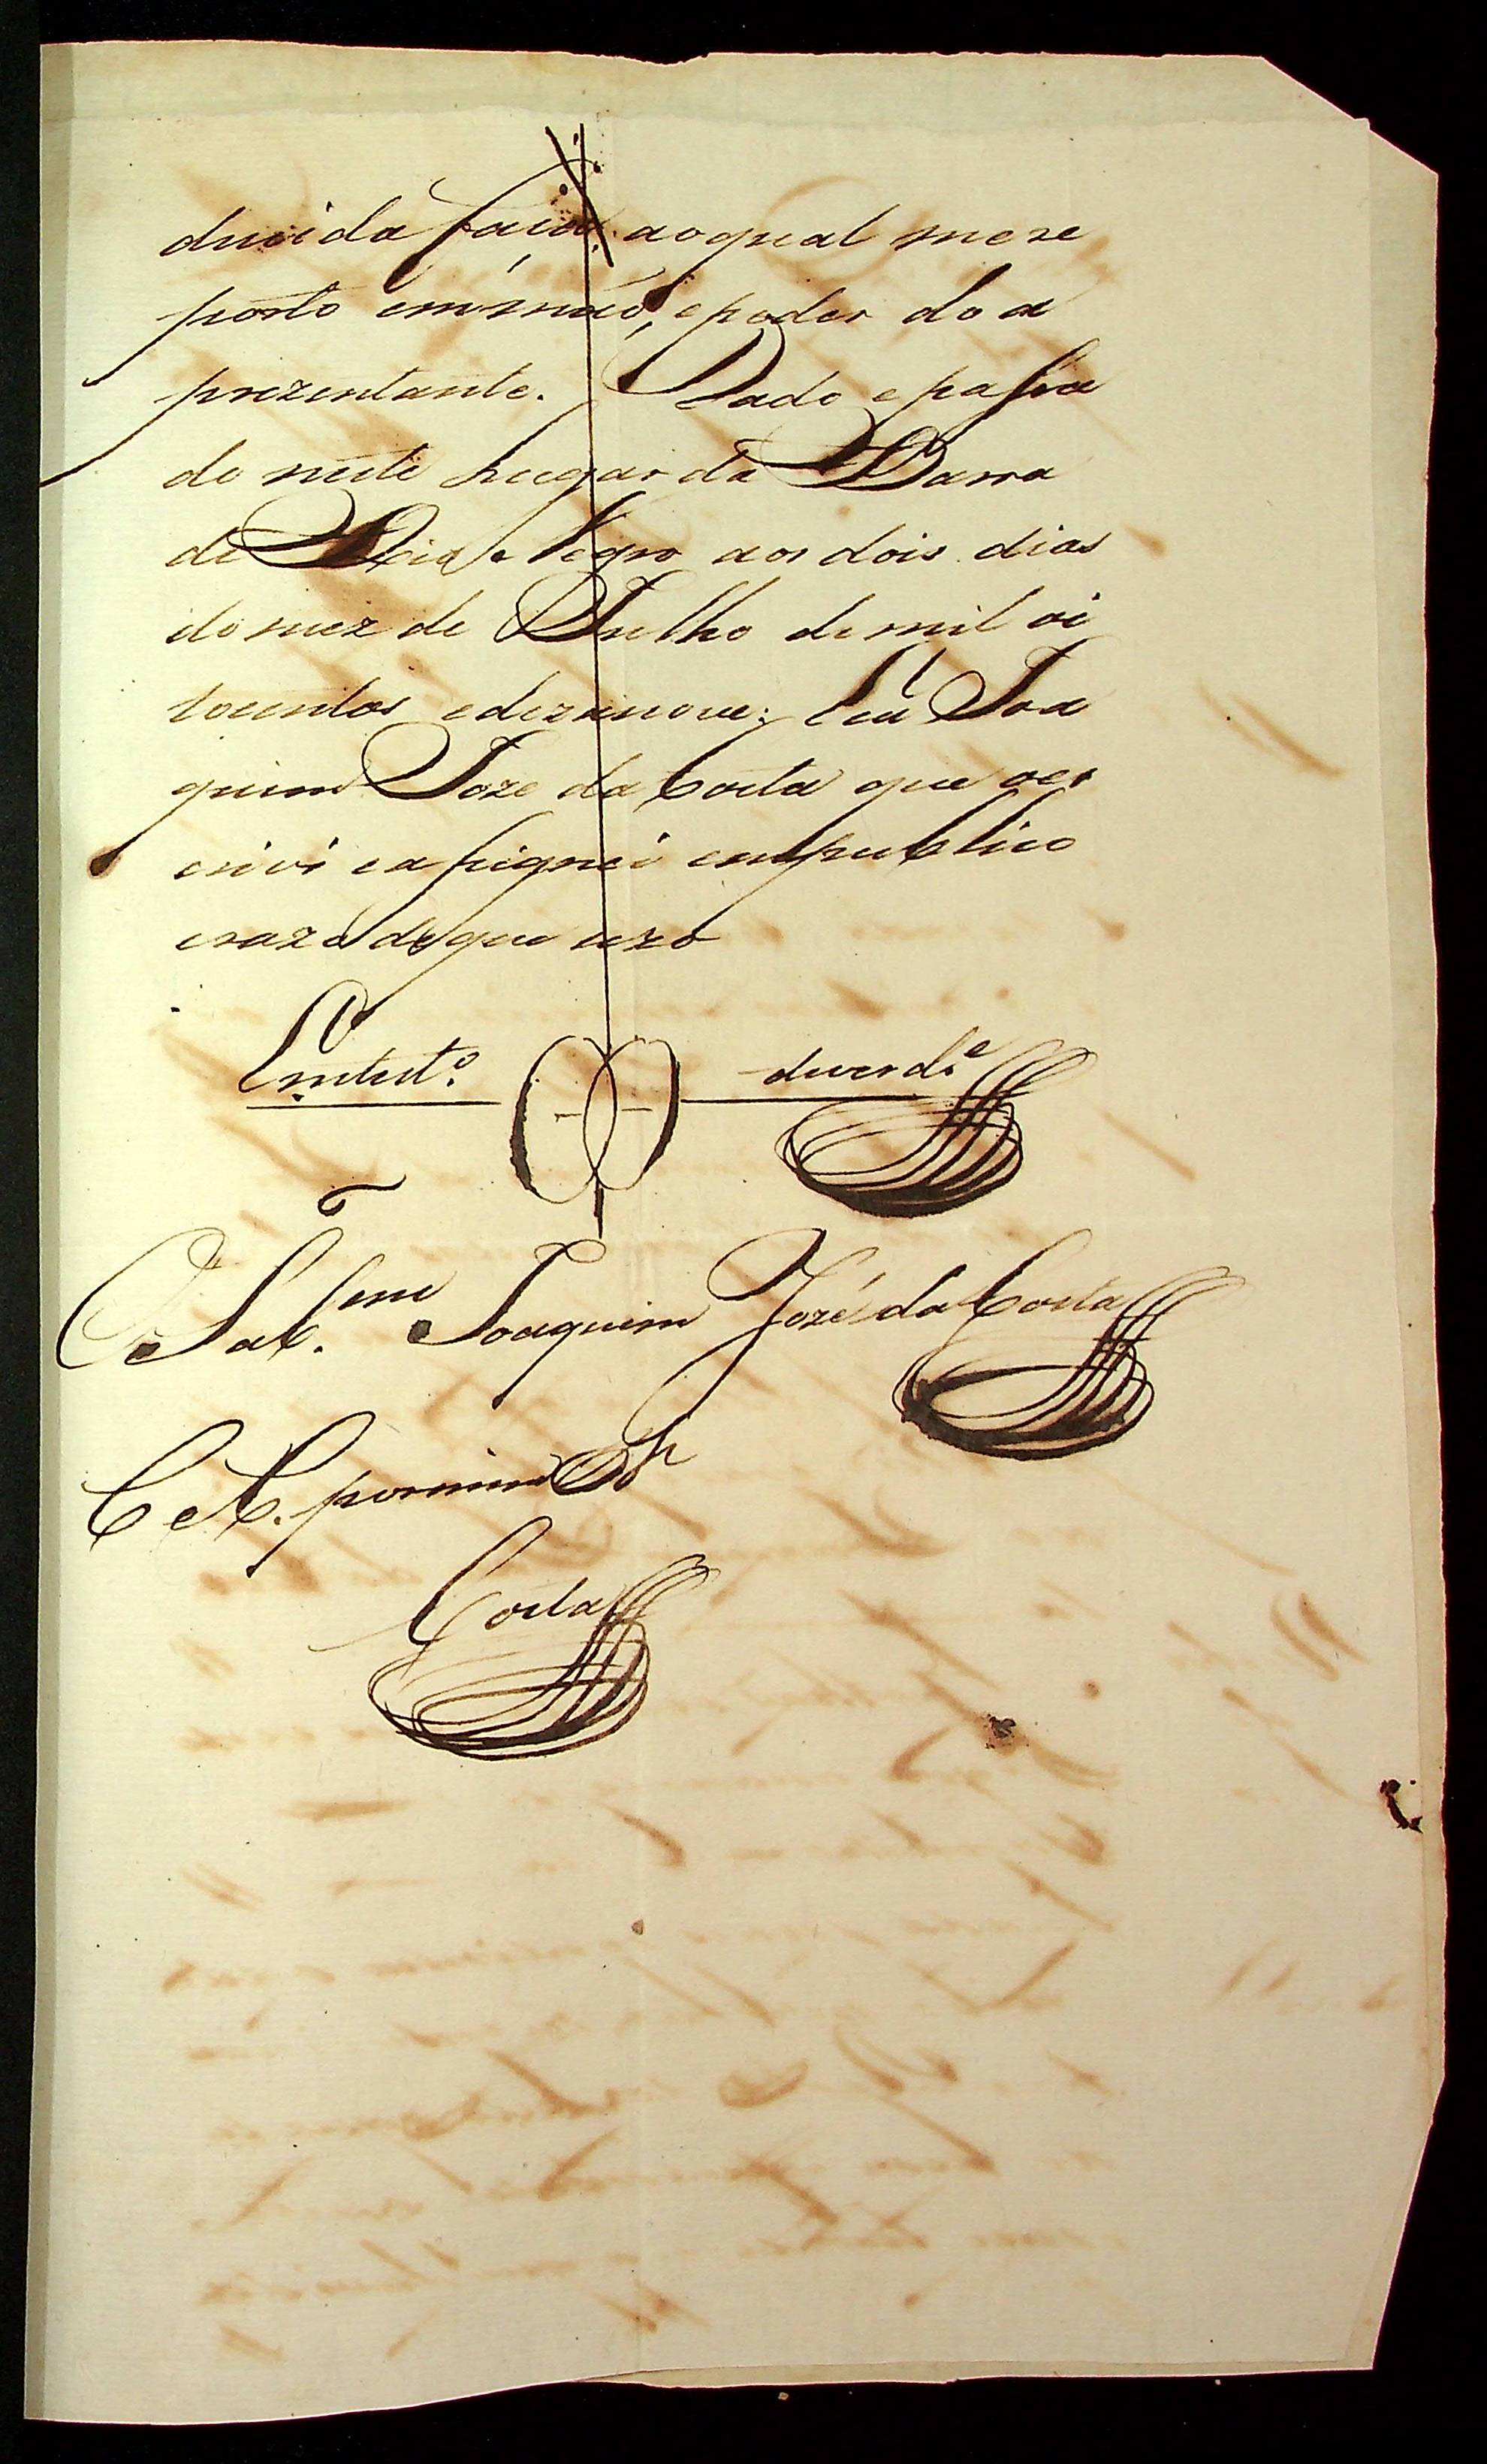 duvida faça aoqual mere
porto emmaõ, epoder do a
prezentante. Dado epassa
do neste Lugar da Barra
do Rio Negro aos dois dias
do mez de Julho de mil oi
tocentos edezanove; Eu Joa
quim Joze da Costa que oes
crivi eaſsignei empublico
erazo de que uzo
Emtestº. deverdᵉ
O Tabᵃᵐ. Joaquim José da Costa
C eC. pormim
Costa